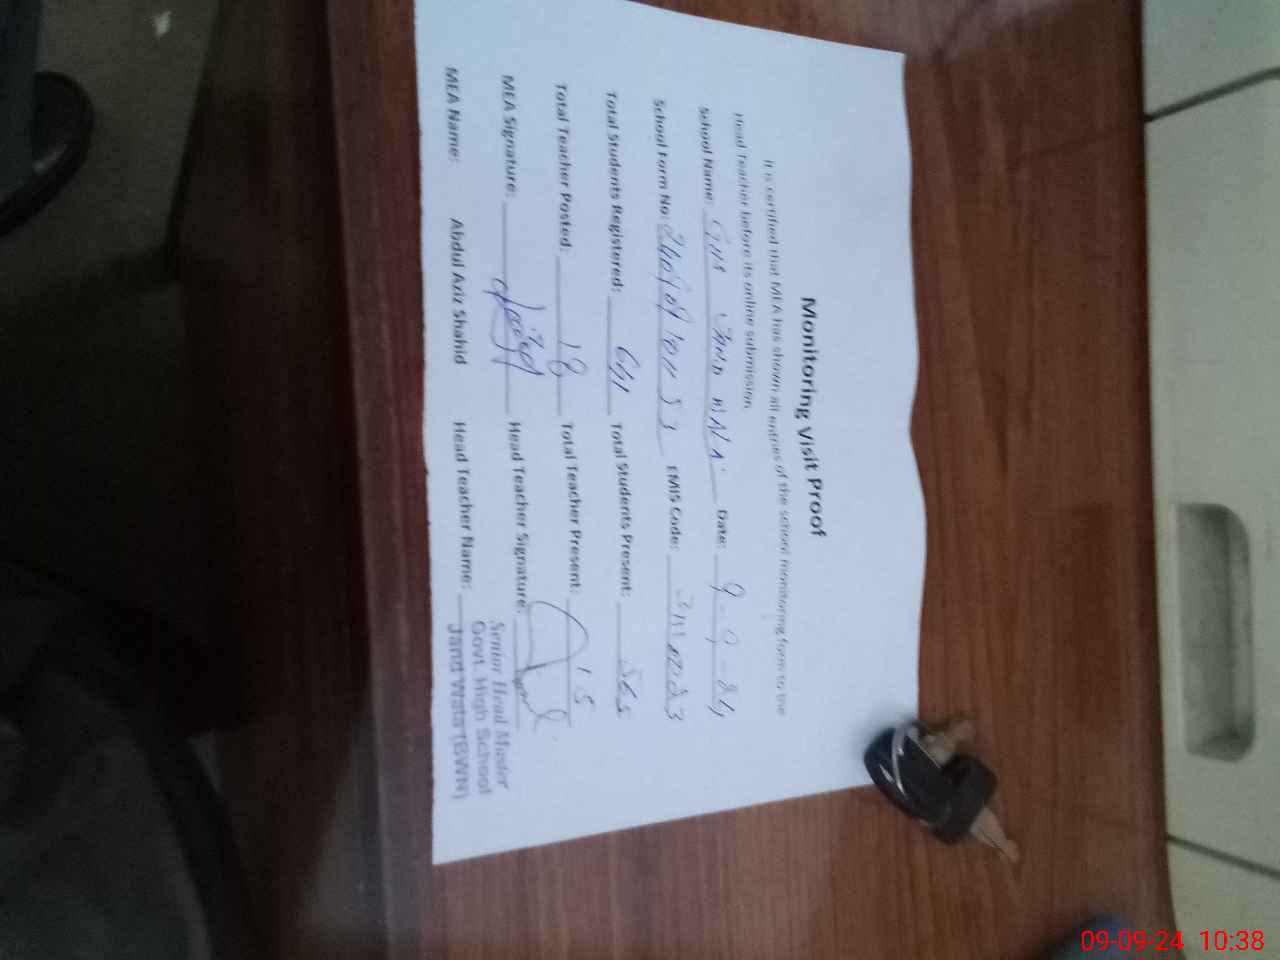 Monitoring Visit Proof
It is certified that MEA has shown all entries of the school monitoring form to the
Head Teacher before its online submission
School Name: GHS JAND WALA Date: 9-9-24
School Form No: EMIS Code:
Total Students Registered: 641 Total Students Present: 565
Total Teacher Posted: 18 Total Teacher Present: 15
MEA Signature: Head Teacher Signature:
MEA Name: Abdul Aziz Shahid Head Teacher Name:
Senior Head Master
Govt. High School
Jand Wala (BWN)
09-09-24 10:38